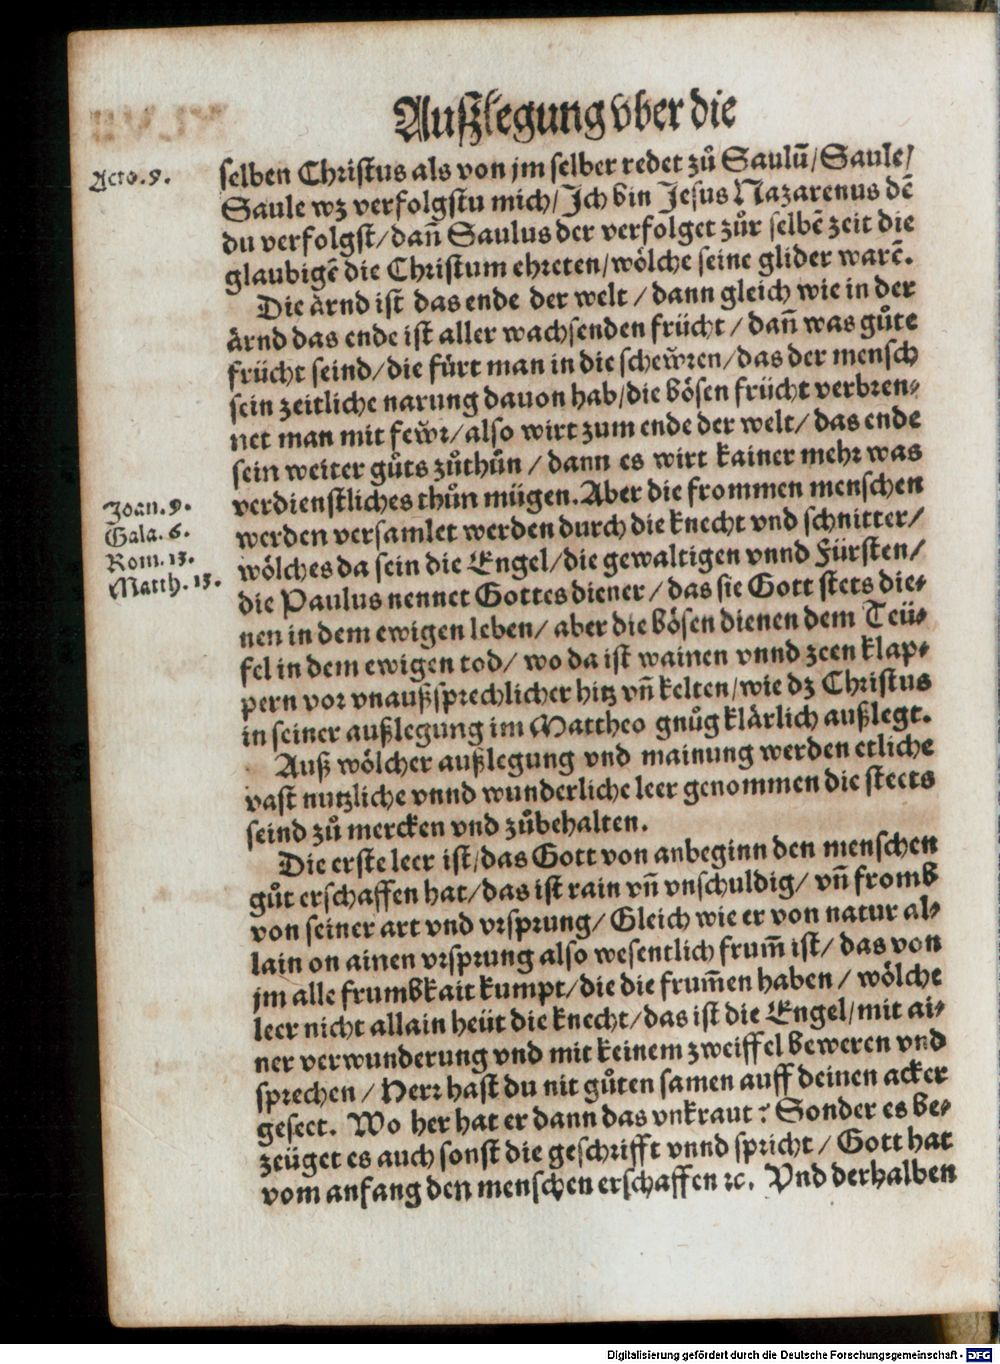 Außlegung vber die
Acto. 9.
selben Christus als von jm selber redet zů Saulū/Saule/
Saule wz verfolgstu mich/Ich bin Jesus Nazarenus dē
du verfolgst/dañ Saulus der verfolget zůr selbē zeit die
glaubigē die Christum ehreten/wölche seine glider warē.
Die ärnd ist das ende der welt / dann gleich wie in der
ärnd das ende ist aller wachsenden frücht / dañ was gůte
frücht seind/die fürt man in die schewren/das der mensch
sein zeitliche narung dauon hab/die bösen frücht verbren⸗
net man mit fewr/also wirt zum ende der welt/ das ende
sein weiter gůts zůthůn / dann es wirt kainer mehr was
Joan. 9.
Gala. 6.
Rom. 13.
Matth. 13.
verdienstliches thůn mügen. Aber die frommen menschen
werden versamlet werden durch die knecht vnd schnitter/
wölches da sein die Engel/die gewaltigen vnnd Fürsten/
die Paulus nennet Gottes diener / das sie Gott stets die⸗
nen in dem ewigen leben/ aber die bösen dienen dem Teü⸗
fel in dem ewigen tod/ wo da ist wainen vnnd zeen klap⸗
pern vor vnaußsprechlicher hitz vñ kelten/wie dz Christus
in seiner außlegung im Mattheo gnůg klärlich außlegt.
Auß wölcher außlegung vnd mainung werden etliche
vast nutzliche vnnd wunderliche leer genommen die steets
seind zů mercken vnd zůbehalten.
Die erste leer ist/das Gott von anbeginn den menschen
gůt erschaffen hat/das ist rain vñ vnschuldig/ vñ fromb
von seiner art vnd vrsprung/ Gleich wie er von natur al⸗
lain on ainen vrsprung also wesentlich frum̃ ist/ das von
jm alle frumbkait kumpt/die die frum̃en haben / wölche
leer nicht allain heüt die knecht/das ist die Engel/mit ai⸗
ner verwunderung vnd mit keinem zweiffel beweren vnd
sprechen / Herr hast du nit gůten samen auff deinen acker
geseet. Wo her hat er dann das vnkraut? Sonder es be⸗
zeüget es auch sonst die geschrifft vnnd spricht / Gott hat
vom anfang den menschen erschaffen ꝛc. Vnd derhalben
Digitalisierung gefördert durch die Deutsche Forschungsgemeinschaft - DFG